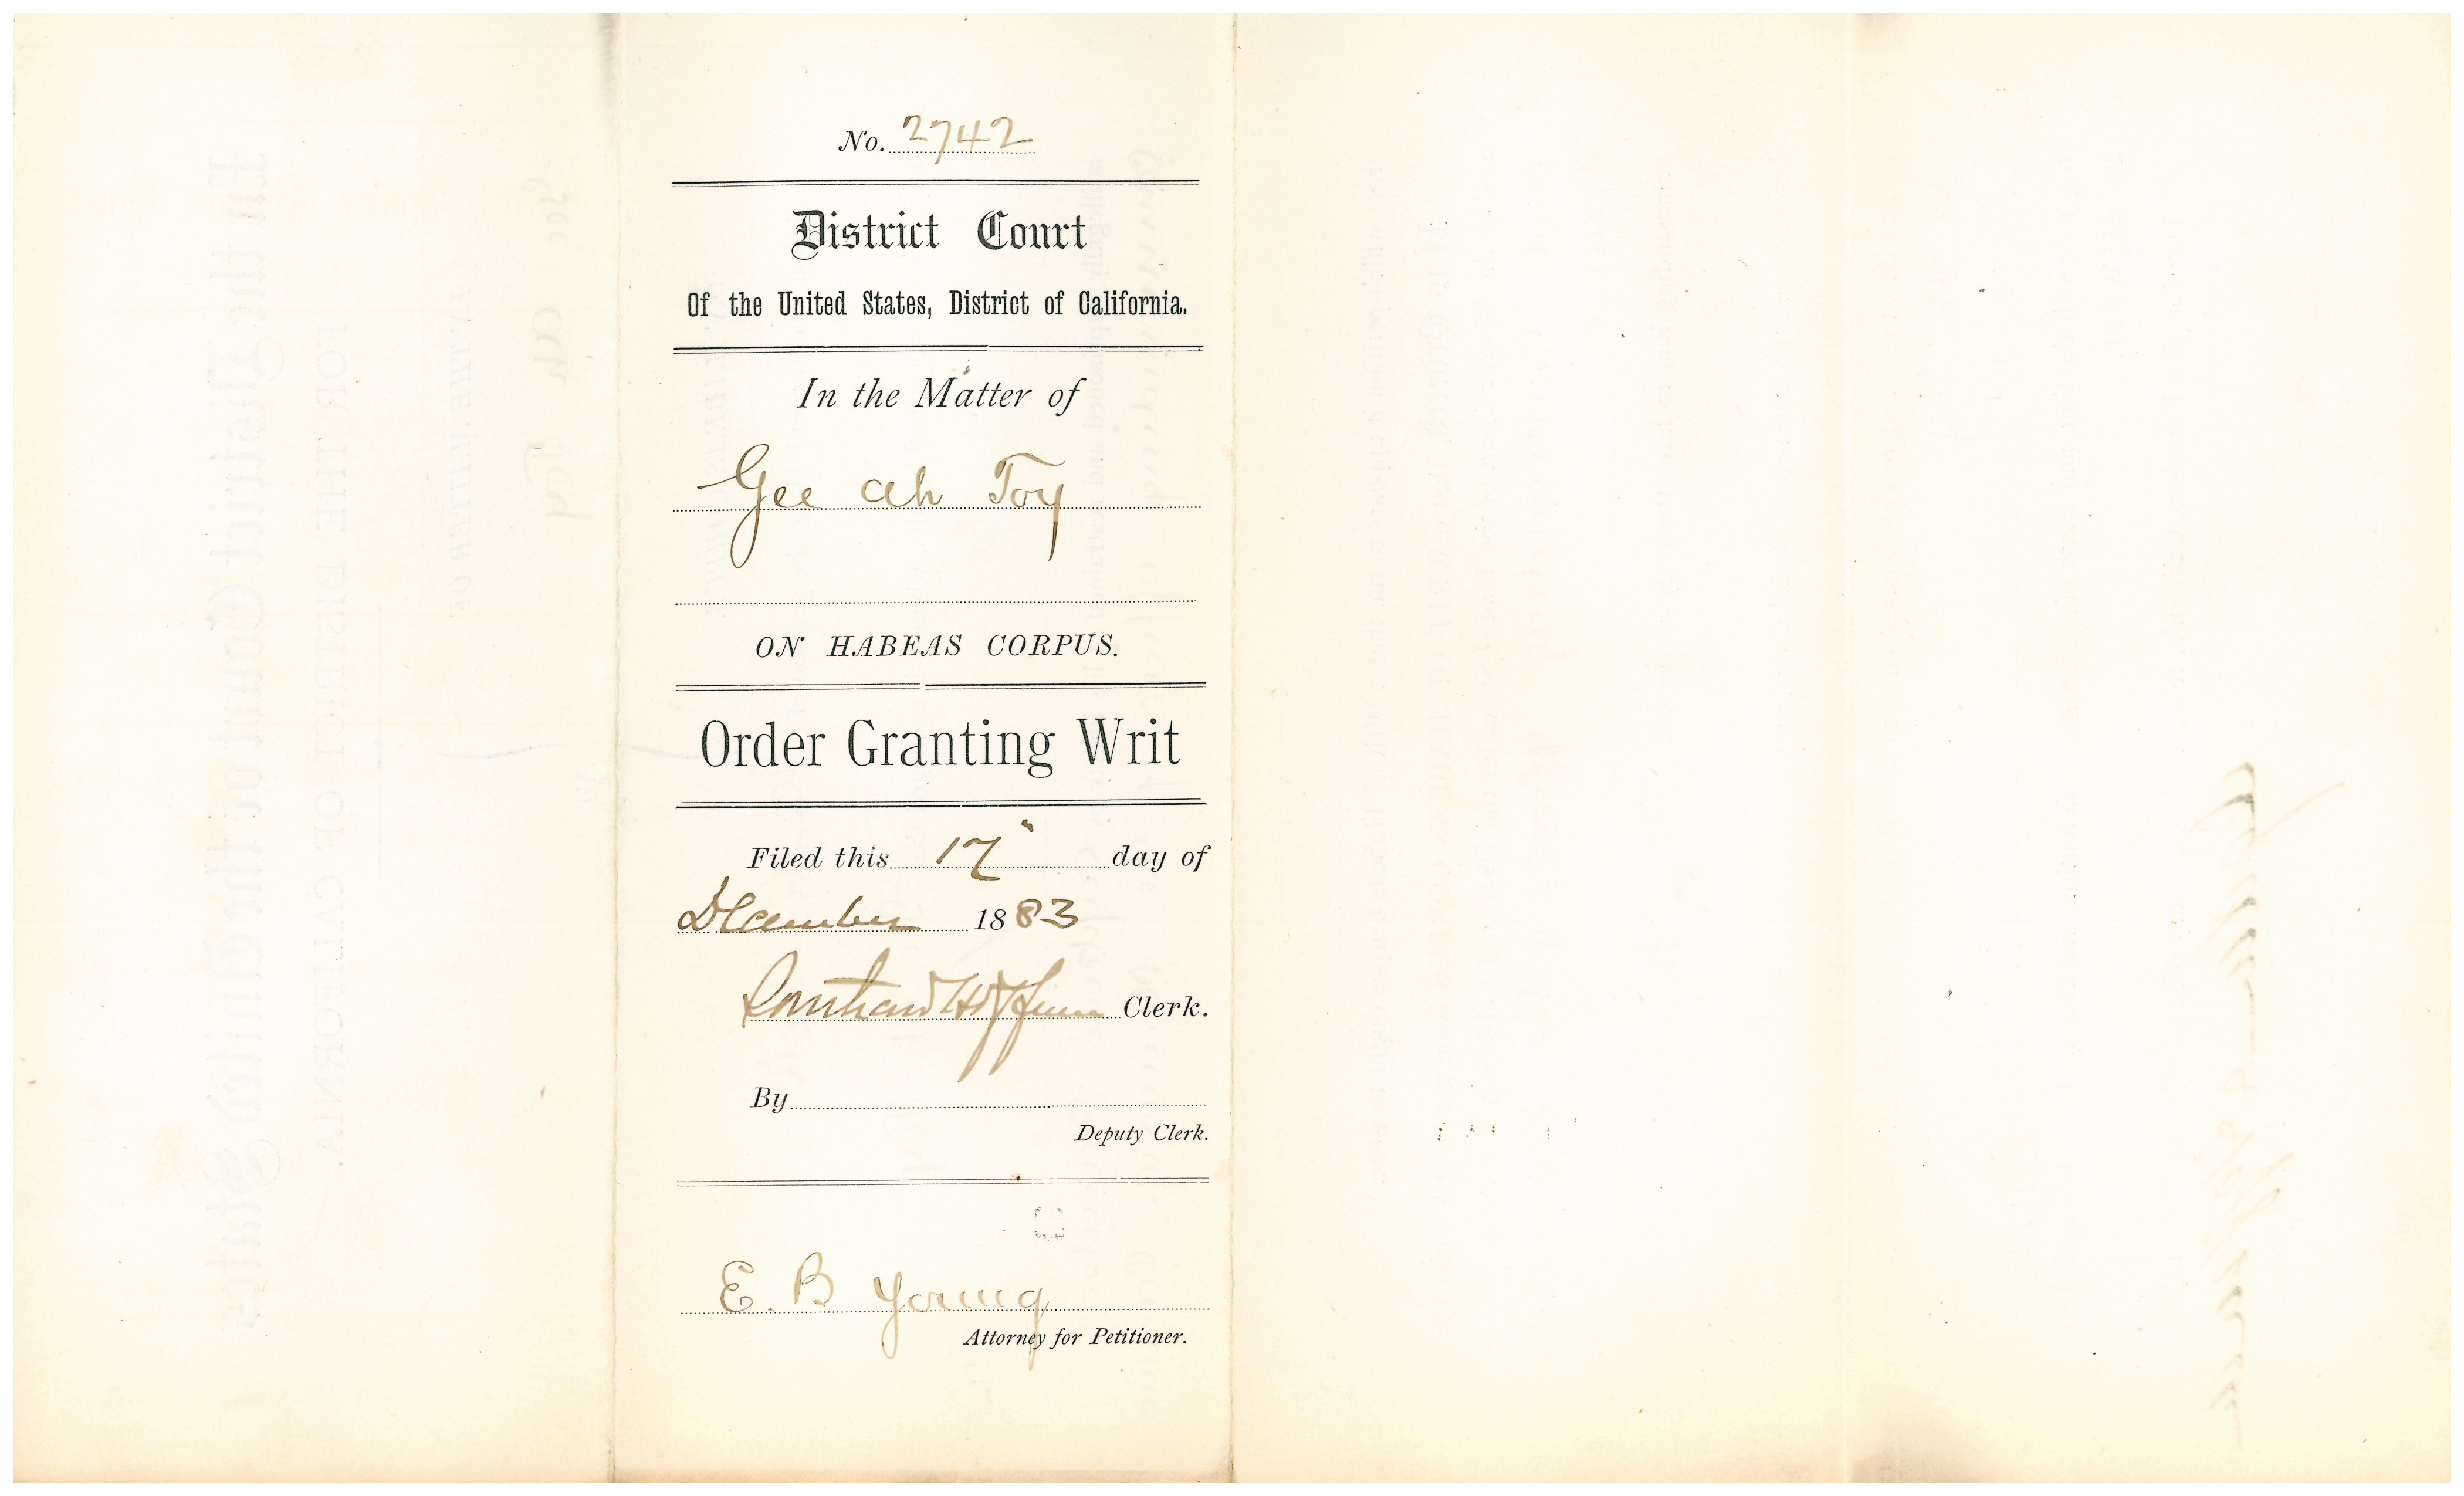 No. 2742
District Court
Of the United States, District of California.
In the Matter of
Gee Ah Toy
ON HABEAS CORPUS.
Order Granting Writ
Filed this 17" day of
December 1883
Southard Hoffman Clerk.
By
Deputy Clerk.
E. B Young
Attorney for Petitioner.